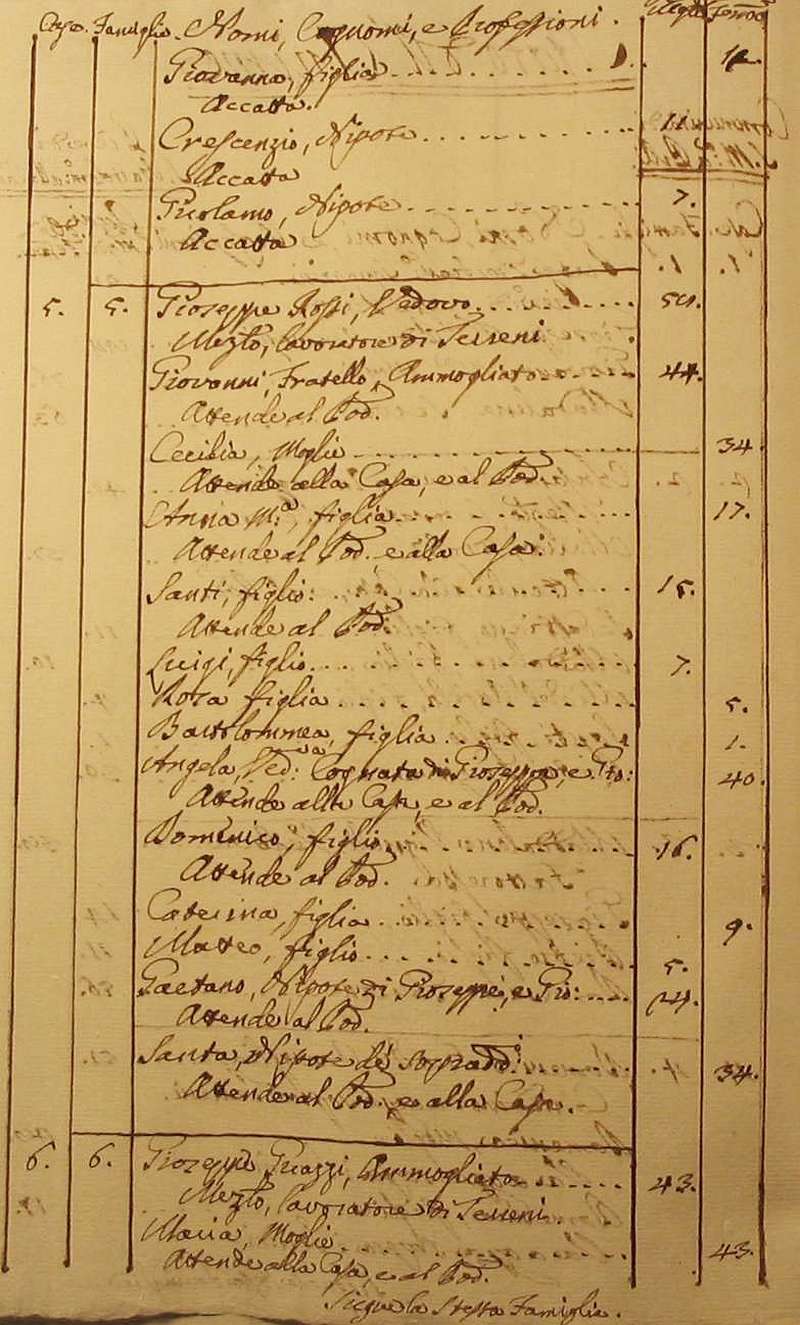 Case. Famiglie. Nomi, Cognomi, e Professioni. Femm
Giovanna, figlia 12.
Accatta.
Crescenzio, Nipote 11.
Accatta
Girolamo, Nipote 7.
Accatta
5. 5. Gioseppe Rossi, Vedovo 50.
Mezto, lavoratore di Terreni
Giovanni, Fratello, Ammogliato 44.
Attende al Pod.
Cecilia, Moglie 34.
Attende alla Casa, e al Pod.
Anna M.a, figlia 17.
Attende al Pod. e alla Casa.
Santi, figlio: 15.
Attende al Pod.
Luigi, figlio 7.
Rosa figlia 5.
Bartolommea, figlia 1.
Angela, Ved:va Cognata di Gioseppe, e Gio: 40.
Attende alla Casa, e al Pod.
Domenico, figlio 16.
Attende al Pod.
Caterina, figlia 9.
Matteo, figlio 5.
Gaetano, Nipote di Gioseppe, e Gio: 24.
Attende al Pod.
Santa, Nipote de' sopradd: 34.
Attende al Pod. e alla Casa.
6. 6. Gioseppe Guazzi, Ammogliato 43.
Mezto, lavoratore di Terreni.
Maria, Moglie 43.
Attende alla Casa, e al Pod.
Siegue la Stessa Famiglia.